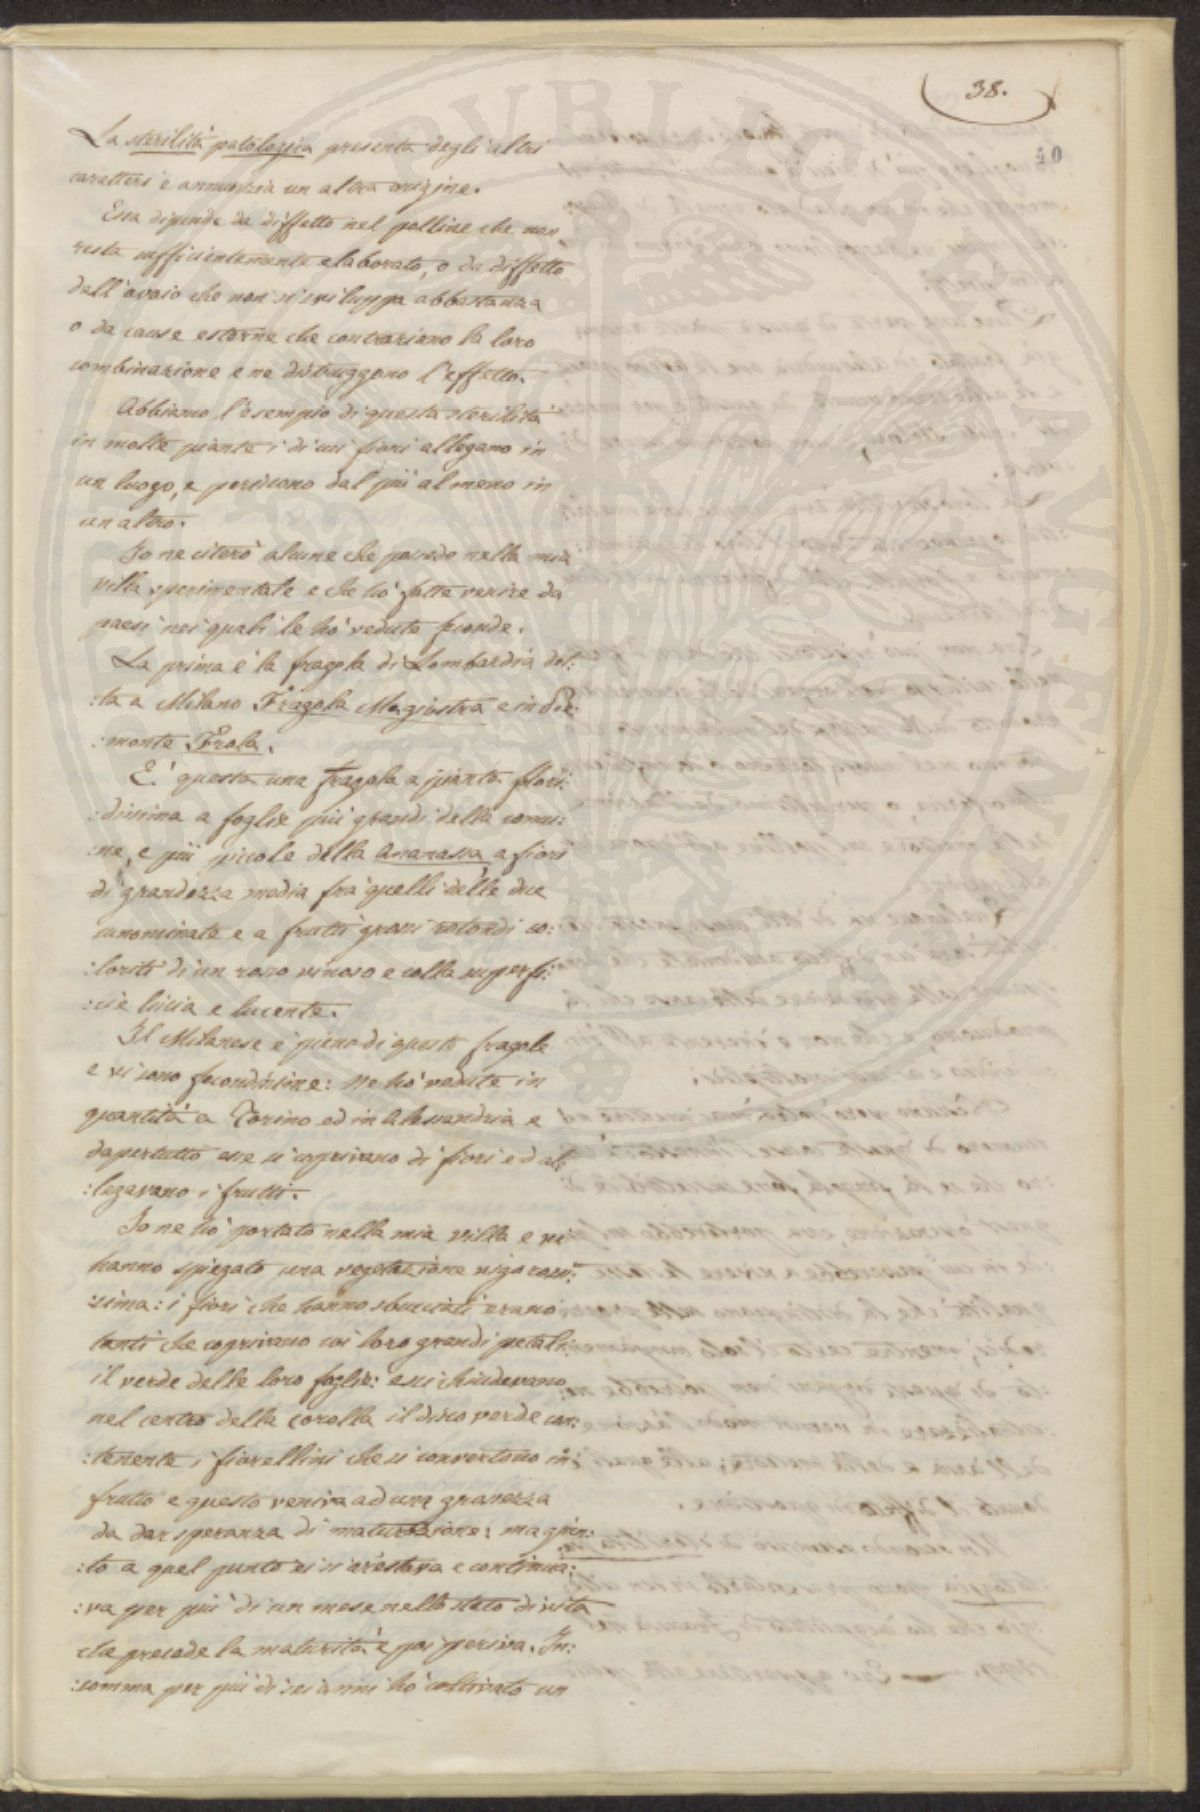 38.
40
La sterilità patologica presenta degli altri
caratteri e annunzia un altra origine.
Essa dipende da diffetto nel polline che non
resta sufficientemente elaborato, o da diffetto
dell'ovaio che non si sviluppa abbastanza
o da cause esterne che contrariano la loro
combinazione e ne distruggono l'effetto.
Abbiamo l'esempio di questa sterilità
in molte piante i di cui fiori allegano in
un luogo, e periscono dal più al meno in
un altro.
Io ne citerò alcune che possedo nella mia
villa sperimentale e che hò fatte venire da
paesi nei quali le hò vedute feconde.
La prima è la fragola di Lombardia det:
:ta a Milano Fragola Magiostra e in Pie:
:monte Frola.
E' questa una fragola a pianta flori:
:dissima a foglie più grandi della comu:
:ne, e più piccole della Ananassa, a fiori
di grandezza media fra quelli delle due
sunominate e a frutti grossi rotondi co:
:loriti di un rosso vinoso e colla superfi:
:cie liscia e lucente.
Il Milanese è pieno di queste fragole
e vi sono fecondissime: ne hò vedute in
quantità a Torino ed in Alessandria e
dapertutto esse si coprivano di fiori ed al:
:legavano i frutti.
Io ne hò portato nella mia villa e vi
hanno spiegato una vegetazione vigorosis:
:sima: i fiori che hanno sbucciati erano
tanti che coprivano coi loro grandi petali
il verde delle loro foglie: essi chiudevano
nel centro della corolla il disco verde con:
:tenente i fiorellini che si convertono in
frutto e questo veniva ad una grossezza
da dar speranza di maturazione: ma giun:
:to a quel punto ei si arestava e continua:
:va per più di un mese nello stato di vita
che precede la maturità e poi periva. In:
:somma per più di sei anni hò coltivato un